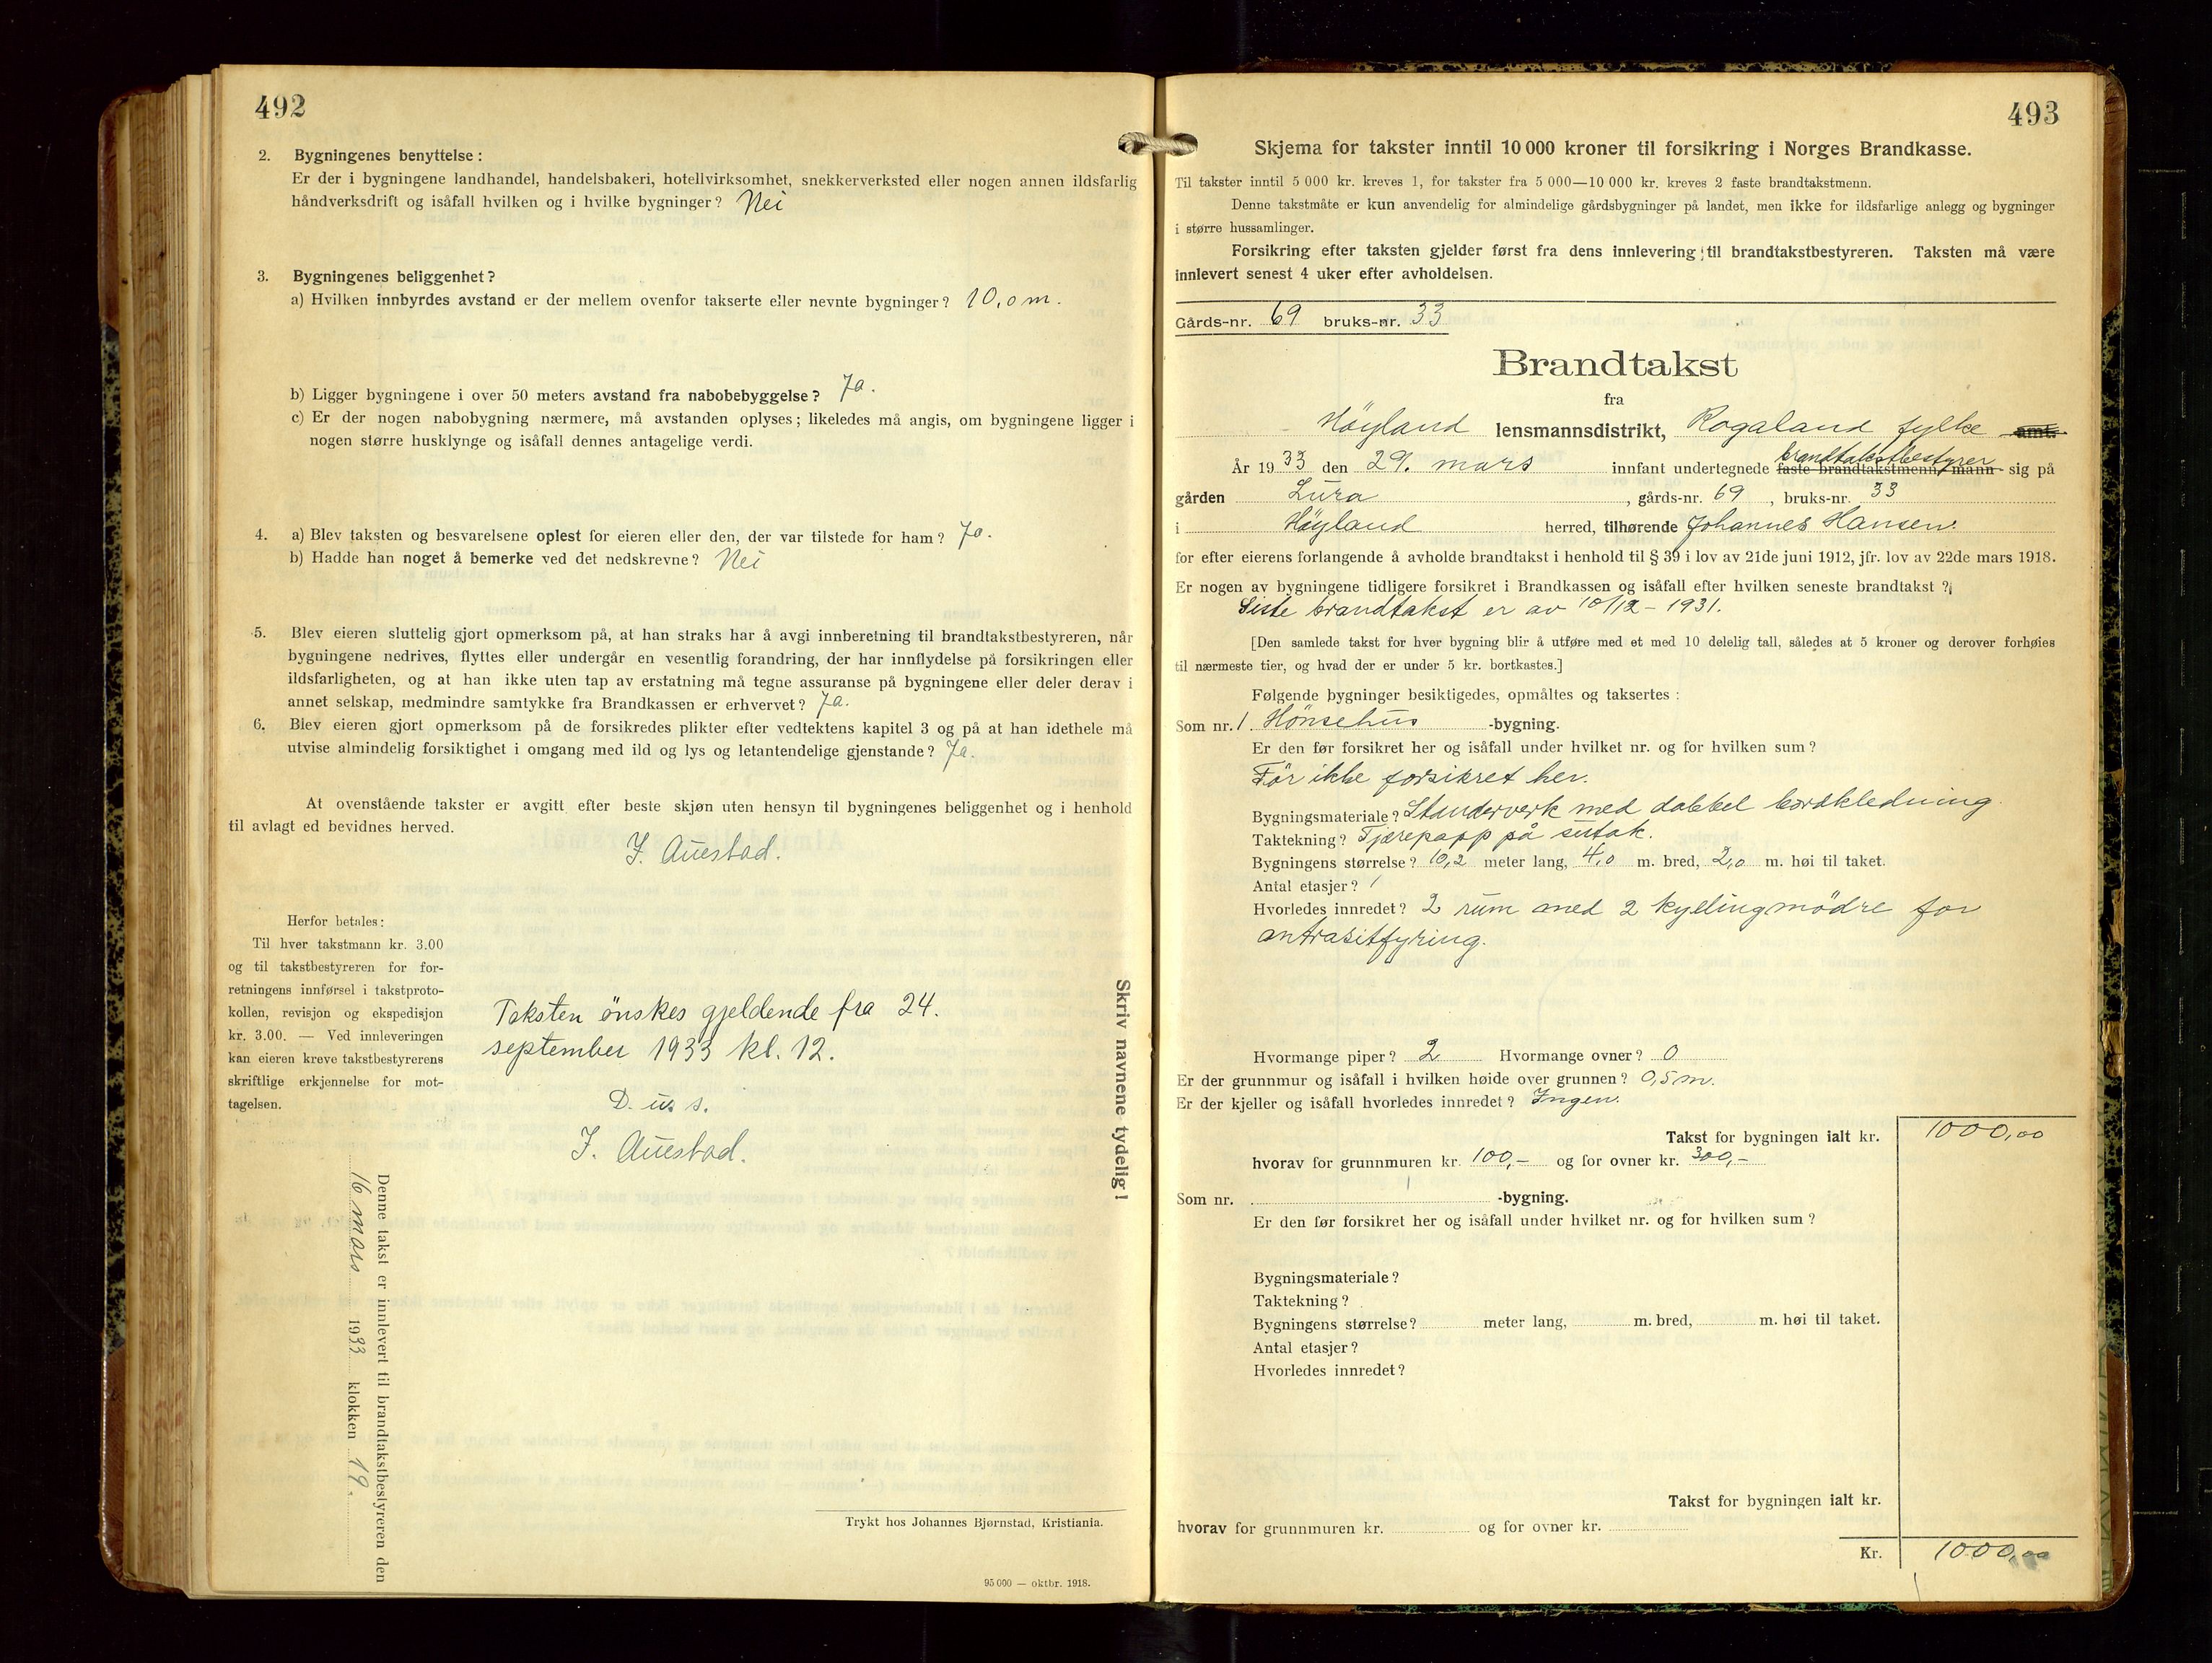 492
2. Bygningenes benyttelse :
Er der i bygningene landhandel, handelsbakeri, hotellvirksomhet, snekkerverksted eller nogen annen ildsfarlig
håndverksdrift og isåfall hvilken og i hvilke bygninger? Nei
3. Bygningenes beliggenhet?
a) Hvilken innbyrdes avstand er der mellem ovenfor takserte eller nevnte bygninger? 10,0 m.
b) Ligger bygningene i over 50 meters avstand fra nabobebyggelse? Ja.
c) Er der nogen nabobygning nærmere, må avstanden oplyses; likeledes må angis, om bygningene ligger i
nogen større husklynge og isåfall dennes antagelige verdi.
4. a) Blev taksten og besvarelsene oplest for eieren eller den, der var tilstede for ham? Ja.
b) Hadde han noget å bemerke ved det nedskrevne? Nei
5. Blev eieren sluttelig gjort opmerksom på, at han straks har å avgi innberetning til brandtakstbestyreren, når
bygningene nedrives, flyttes eller undergår en vesentlig forandring, der har innflydelse på forsikringen eller
ildsfarligheten, og at han ikke uten tap av erstatning må tegne assuranse på bygningene eller deler derav i
annet selskap, medmindre samtykke fra Brandkassen er erhvervet? Ja.
6. Blev eieren gjort opmerksom på de forsikredes plikter efter vedtektens kapitel 3 og på at han idethele må
utvise almindelig forsiktighet i omgang med ild og lys og letantendelige gjenstande? Ja.
At ovenstående takster er avgitt efter beste skjøn uten hensyn til bygningenes beliggenhet og i henhold
til avlagt ed bevidnes herved.
J. Auestad.
Herfor betales:
Til hver takstmann kr. 3.00
og til takstbestyreren for for-
retningens innførsel i takstproto-
kollen, revisjon og ekspedisjon
kr. 3.00. — Ved innleveringen
kan eieren kreve takstbestyrerens
skriftlige erkjennelse for mot-
tagelsen.
Taksten önskes gjeldende fra 24.
september 1933 kl. 12.
D. u. s.
J. Auestad.
Denne takst er innlevert til brandtakstbestyreren den
16 mars 1933 klokken 19.
Skriv navnene tydelig!
Trykt hos Johannes Bjørnstad, Kristiania.
95 000 — oktbr. 1918.
493
Skjema for takster inntil 10 000 kroner til forsikring i Norges Brandkasse.
Til takster inntil 5 000 kr. kreves 1, for takster fra 5 000—10 000 kr. kreves 2 faste brandtakstmenn.
Denne takstmåte er kun anvendelig for almindelige gårdsbygninger på landet, men ikke for ildsfarlige anlegg og bygninger
i større hussamlinger.
Forsikring efter taksten gjelder først fra dens innlevering til brandtakstbestyreren. Taksten må være
innlevert senest 4 uker efter avholdelsen.
Gårds-nr. 69 bruks-nr. 33
Brandtakst
fra
Höyland lensmannsdistrikt, Rogaland fylke amt.
brandtakstbestyrer
År 1933 den 29. mars innfant undertegnede faste brandtakstmenn/mann sig på
gården Lura, gårds-nr. 69, bruks-nr. 33
i Höyland herred, tilhørende Johannes Hansen.
for efter eierens forlangende å avholde brandtakst i henhold til § 39 i lov av 21de juni 1912, jfr. lov av 22de mars 1918.
Er nogen av bygningene tidligere forsikret i Brandkassen og isåfall efter hvilken seneste brandtakst?
Siste brandtakst er av 10/12 - 1931.
[Den samlede takst for hver bygning blir å utføre med et med 10 delelig tall, således at 5 kroner og derover forhøies
til nærmeste tier, og hvad der er under 5 kr. bortkastes.]
Følgende bygninger besiktigedes, opmåltes og taksertes :
Som nr. 1 Hönsehus -bygning.
Er den før forsikret her og isåfall under hvilket nr. og for hvilken sum?
För ikke forsikret her.
Bygningsmateriale? Standerverk med dobbel bordkledning.
Taktekning? Tjærepapp på sutak.
Bygningens størrelse? 10,2 meter lang, 4,0 m. bred, 2,0 m. høi til taket.
Antal etasjer? 1
Hvorledes innredet? 2 rum med 2 kyllingmödre for
antrasitfyring.
Hvormange piper? 2 Hvormange ovner? 0
Er der grunnmur og isåfall i hvilken høide over grunnen? 0,5 m.
Er der kjeller og isåfall hvorledes innredet? Ingen.
Takst for bygningen ialt kr. 1000,00
hvorav for grunnmuren kr. 100,- og for ovner kr. 300,-
Som nr. -bygning.
Er den før forsikret her og isåfall under hvilket nr. og for hvilken sum?
Bygningsmateriale?
Taktekning?
Bygningens størrelse? meter lang, m. bred, m. høi til taket.
Antal etasjer?
Hvorledes innredet?
Takst for bygningen ialt kr.
hvorav for grunnmuren kr. og for ovner kr.
Kr. 1000,00